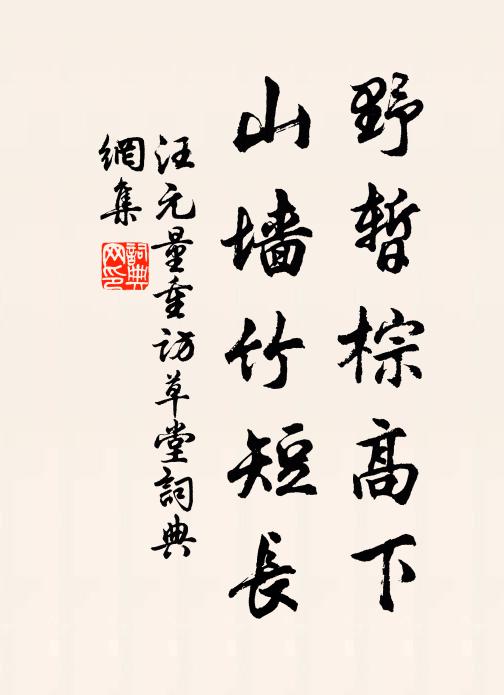 野暫棕高下
山墙竹短長
汪元量重访草堂詞典
網集
詞典网印